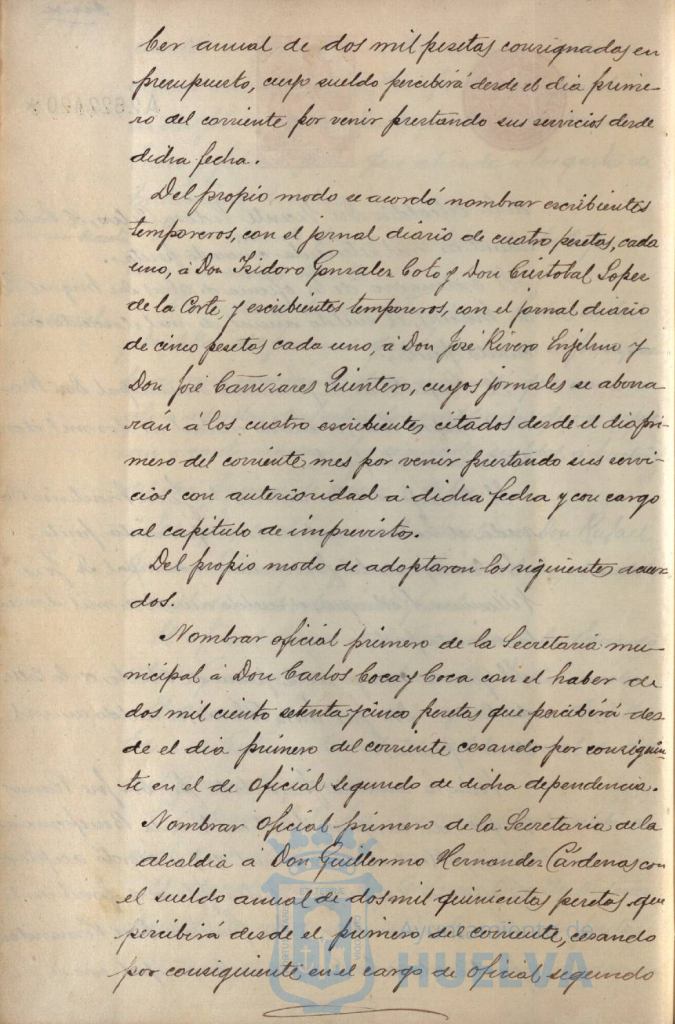 ber anual de dos mil pesetas consignadas en
presupuesto, cuyo sueldo percibirá desde el dia prime-
ro del corriente por venir prestando sus servicios desde
dicha fecha.
Del propio modo se acordó nombrar escribientes
temporeros, con el jornal diário de cuatro pesetas, cada
uno, á Don Isidoro Gonzalez Coto y Don Cristobal Lopez
de la Corte, y escribientes temporeros, con el jornal diario
de cinco pesetas cada uno, á Don José Rivero y
Don José Cañizares Quintero, cuyos jornales se abona
rán á los cuatro escribientes citados desde el dia pri-
mero del corriente mes por venir prestando sus servi-
cios con anterioridad á dicha fecha y con cargo
al capitulo de imprevistos.
Del propio modo de adoptaron los siguientes acuer
dos.
Nombrar oficial primero de la Secretaria mu-
nicipal á Don Carlos Coca y Coca con el haber de
dos mil ciento setenta y cinco pesetas que percibirá des-
de el dia primero del corriente cesando por consiguien
te en el de oficial segundo de dicha dependencia.
Nombrar Oficial primero de la Secretaria de la
alcaldia á Don Guillermo Hernandez Cárdenas con
el sueldo anual de dos mil quinientas pesetas que
percibirá desde el primero del corriente, cesando
por consiguiente en el cargo de oficial segundo
Ayuntamiento de
HUELVA